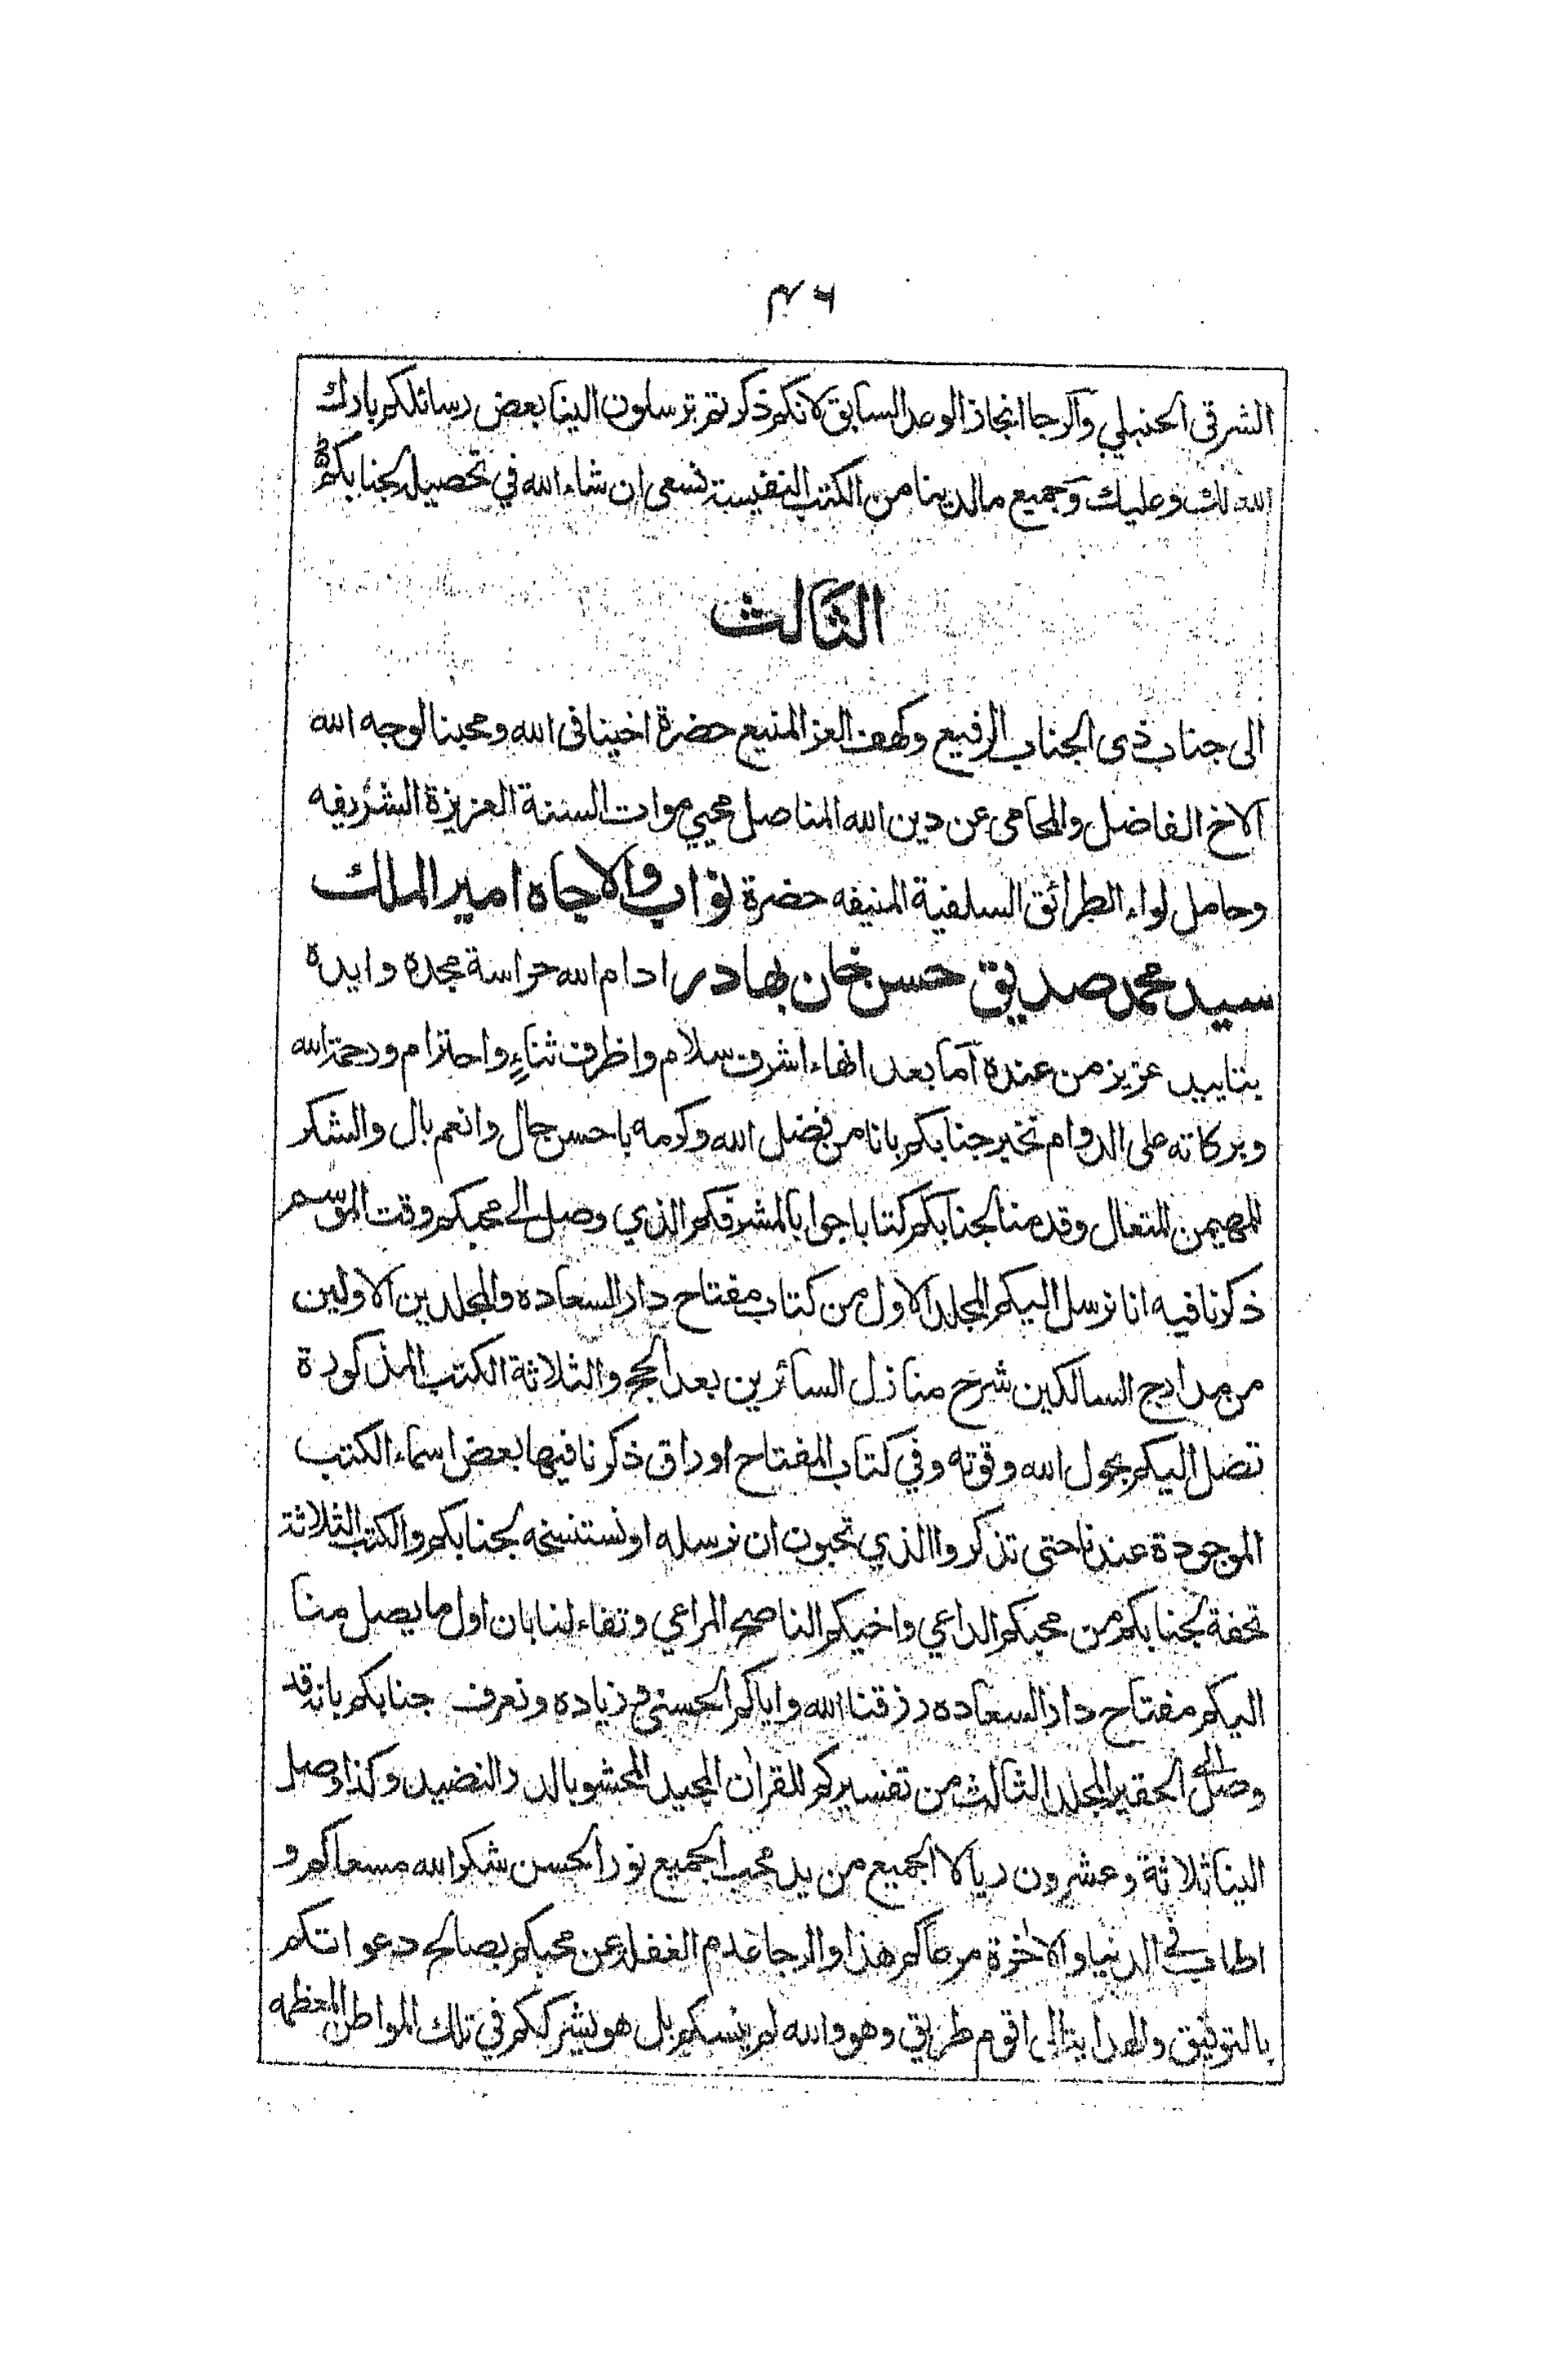 ۴۶
الشرقى الحنبلي والرجا انجاز الوعد السابق لانكم ذكرتم ترسلون الينا بعض رسائلكم بارك
الله لك وعليك وجميع مالدينا من الكتب النفيسة نسعى ان شاء الله في تحصيله لجنابكم
الثالث
الى جناب ذى الجناب الرفيع وكهف العز المنيع حضرة اخينا فى الله ومحبنا لوجه الله
الاخ الفاضل والمحامى عن دين الله المناصل محيي موات السنة العزيزة الشريفه
وحامل لواء الطرائق السلفية المنيفه حضرة نواب والاجاه امير الملك
سيد محمد صديق حسن خان بهادر ادام الله حراسة مجده وايده
بتاييد عزيز من عنده اما بعد انهاء اشرف سلام واظرف ثناءٍ واحترام ورحمة الله
وبركاته على الدوام نخبر جنابكم بانا من فضل الله وكرمه باحسن حال وانعم بال والشكر
للمهيمن المتعال وقدمنا لجنابكم كتابا جوابا لمشرفكم الذي وصل الى محبكم وقت الموسم
ذكرنا فيه انا نرسل اليكم المجلد الاول من كتاب مفتاح دار السعاده والمجلدين الاولين
من مدارج السالكين شرح منازل السائرين بعد الحج والثلاثة الكتب المذكورة
تصل اليكم بحول الله وقوته وفي كتاب المفتاح اوراق ذكرنا فيها بعض اسماء الكتب
الموجودة عندنا حتى تذكروا الذي تحبون ان نرسله او نستنسخه لجنابكم والكتب الثلاثة
تحفة لجنابكم من محبكم الداعي واخيكم الناصح المراعي وتفاءلنا بان اول ما يصل منا
اليكم مفتاح دار السعاده رزقنا الله واياكم الحسنى وزياده ونعرف جنابكم بانه قد
وصل الى الحقير المجلد الثالث من تفسيركم للقران المجيد المحشو بالدر والنضيد وكذا وصل
الينا ثلاثة وعشرون ريالا الجميع من يد محب الجميع نور الحسن شكر الله مسعاكم و
اطاب في الدنيا والاخرة مرعاكم هذا والرجا عدم الغفلة عن محبكم بصالح دعواتكم
بالتوفيق والهداية الى اقوم طريق وهو والله لم ينسكم بل هو يشرككم في تلك المواطن المعظمه